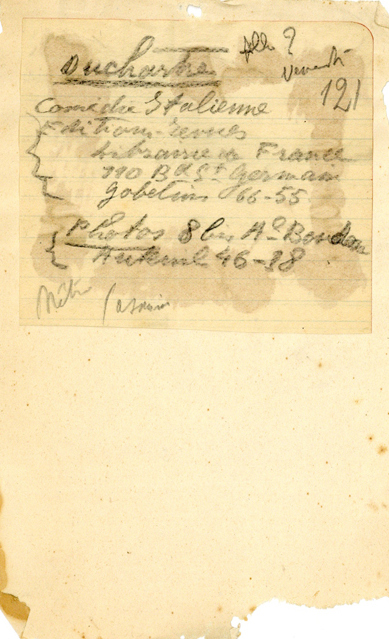 Duchartre
121
Comédie Italienne
Editions-revues
Librairie de France
110 Bd St Germain
Gobelins 66-55
Photos 8 bis Ad Boudon
Auteuil 46-38
Métro